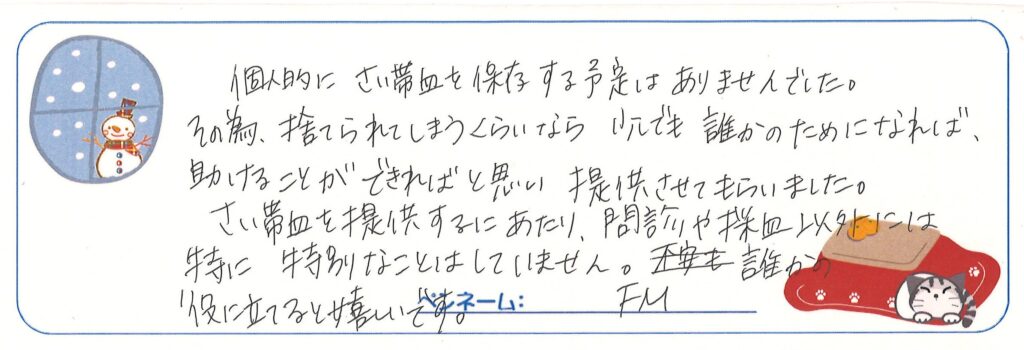 個人的に さい帯血を保存する予定はありませんでした。
その為、捨てられてしまうくらいなら 少しでも 誰かのためになれば、
助けることができればと思い 提供させてもらいました。
さい帯血を提供するにあたり、問診や採血以外には
特に 特別なことはしていません。 誰かの
役に立てると嬉しいです。
ペンネーム: FM